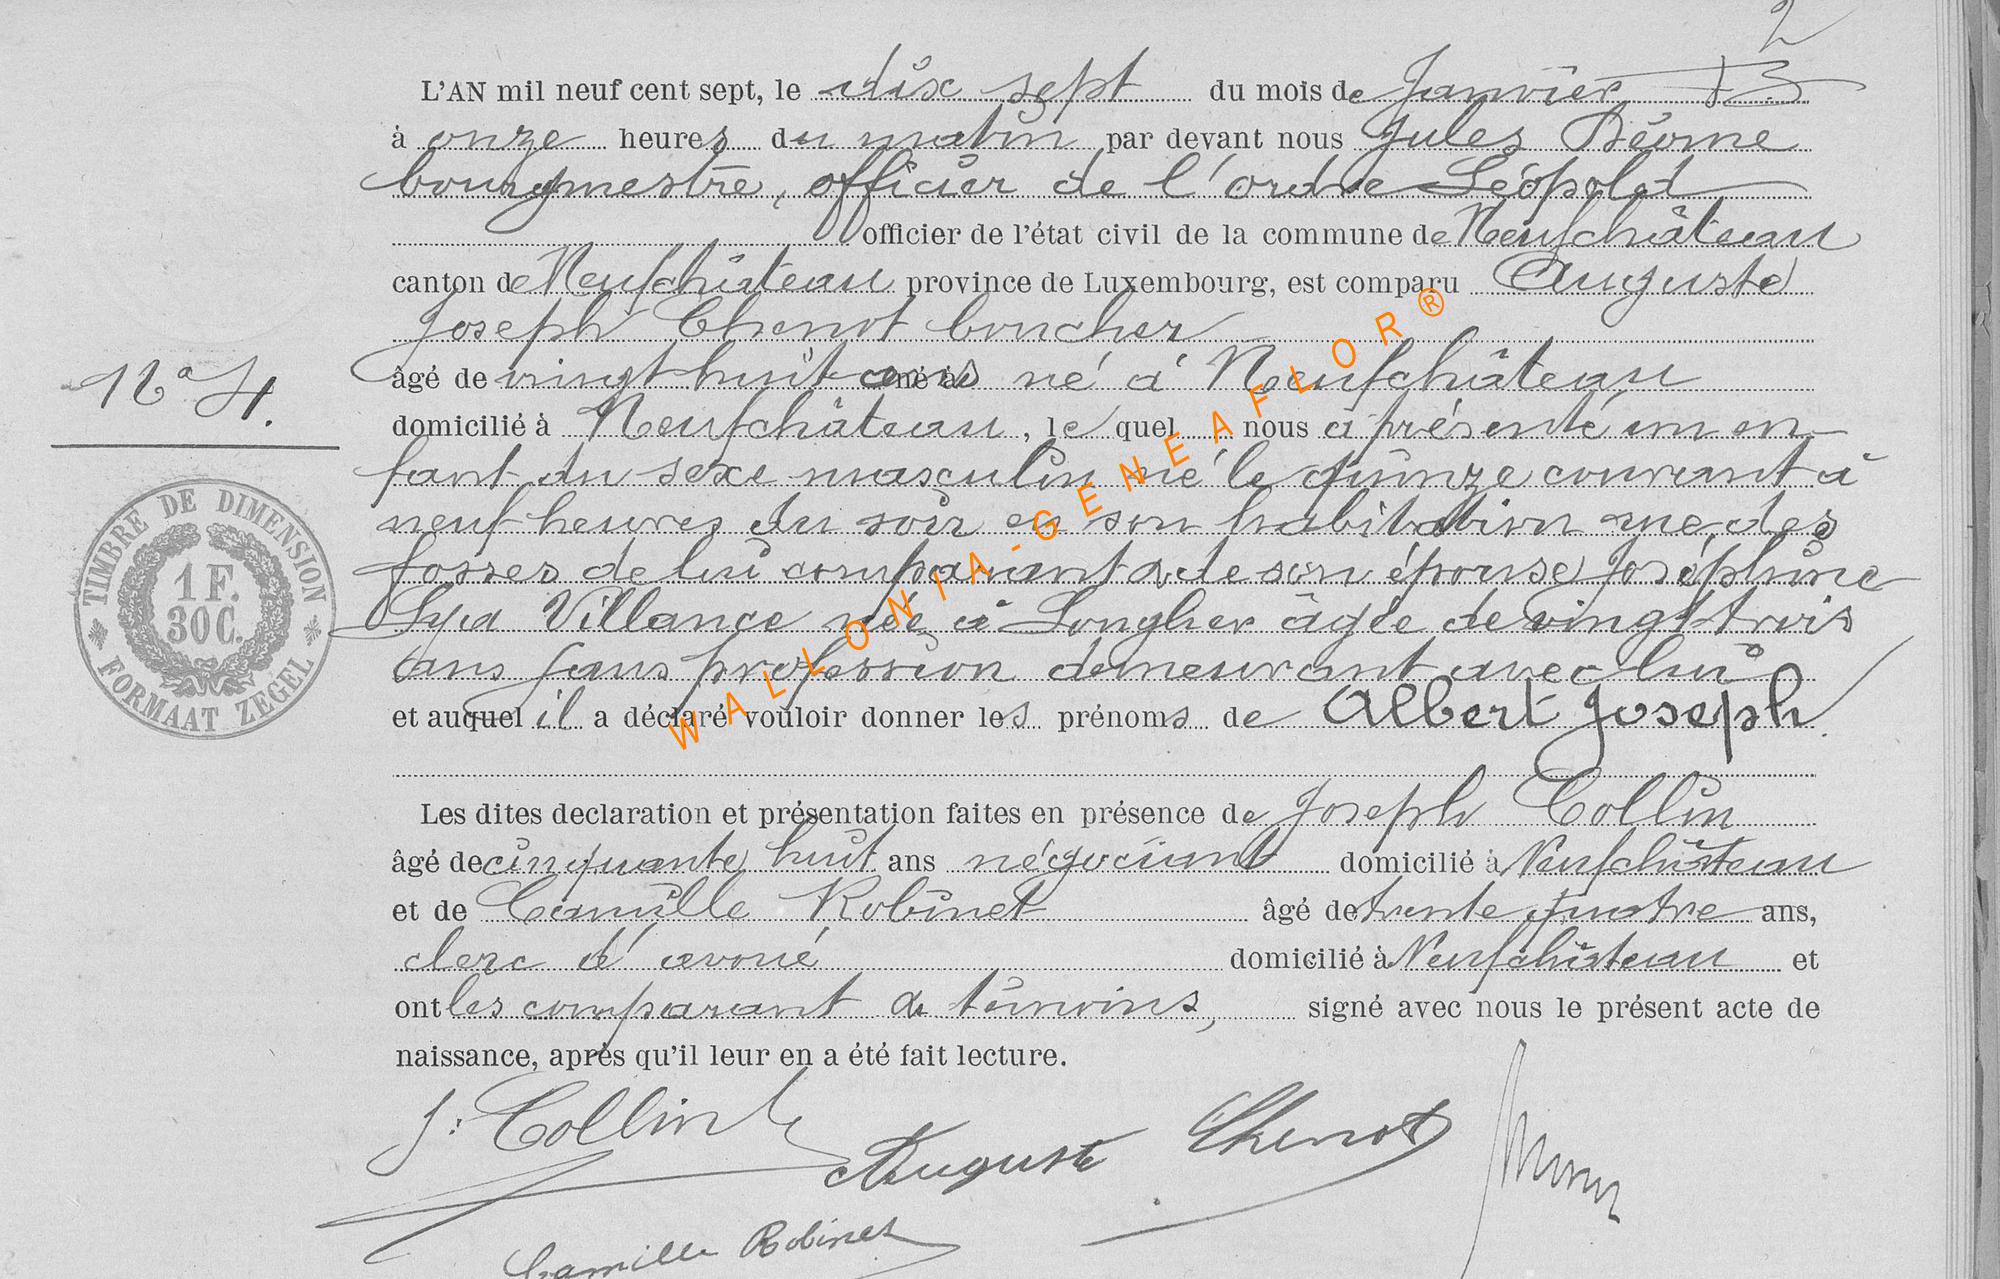 2
L'AN mil neuf cent sept, le dix sept du mois de Janvier
à onze heures du matin par devant nous Jules
bourgmestre, officier de l'ordre Léopold
officier de l'état civil de la commune de Neufchâteau
canton de Neufchâteau province de Luxembourg, est comparu Auguste
Joseph Chenot boucher
âgé de vingt huit ans né à Neufchâteau
Nº 4.
domicilié à Neufchâteau, le quel nous a présenté un en-
fant du sexe masculin né le quinze courant à
neuf heures du soir en son habitation rue des
fosses de lui comparant & de son épouse Joséphine
Villance née à Longlier âgée de vingt trois
ans sans profession demeurant avec lui
et auquel il a déclaré vouloir donner les prénoms de Albert Joseph
Les dites declaration et présentation faites en présence de Joseph Collin
âgé de cinquante huit ans négociant domicilié à Neufchâteau
et de Camille Robinet âgé de trente quatre ans,
clerc d'avoué domicilié à Neufchâteau et
ont les comparant & témoins, signé avec nous le présent acte de
naissance, après qu'il leur en a été fait lecture.
J. Collin
Auguste Chenot
Camille Robinet
TIMBRE DE DIMENSION
1 F.
30 C.
FORMAAT ZEGEL
WALLONIA-GENEAFLOR®